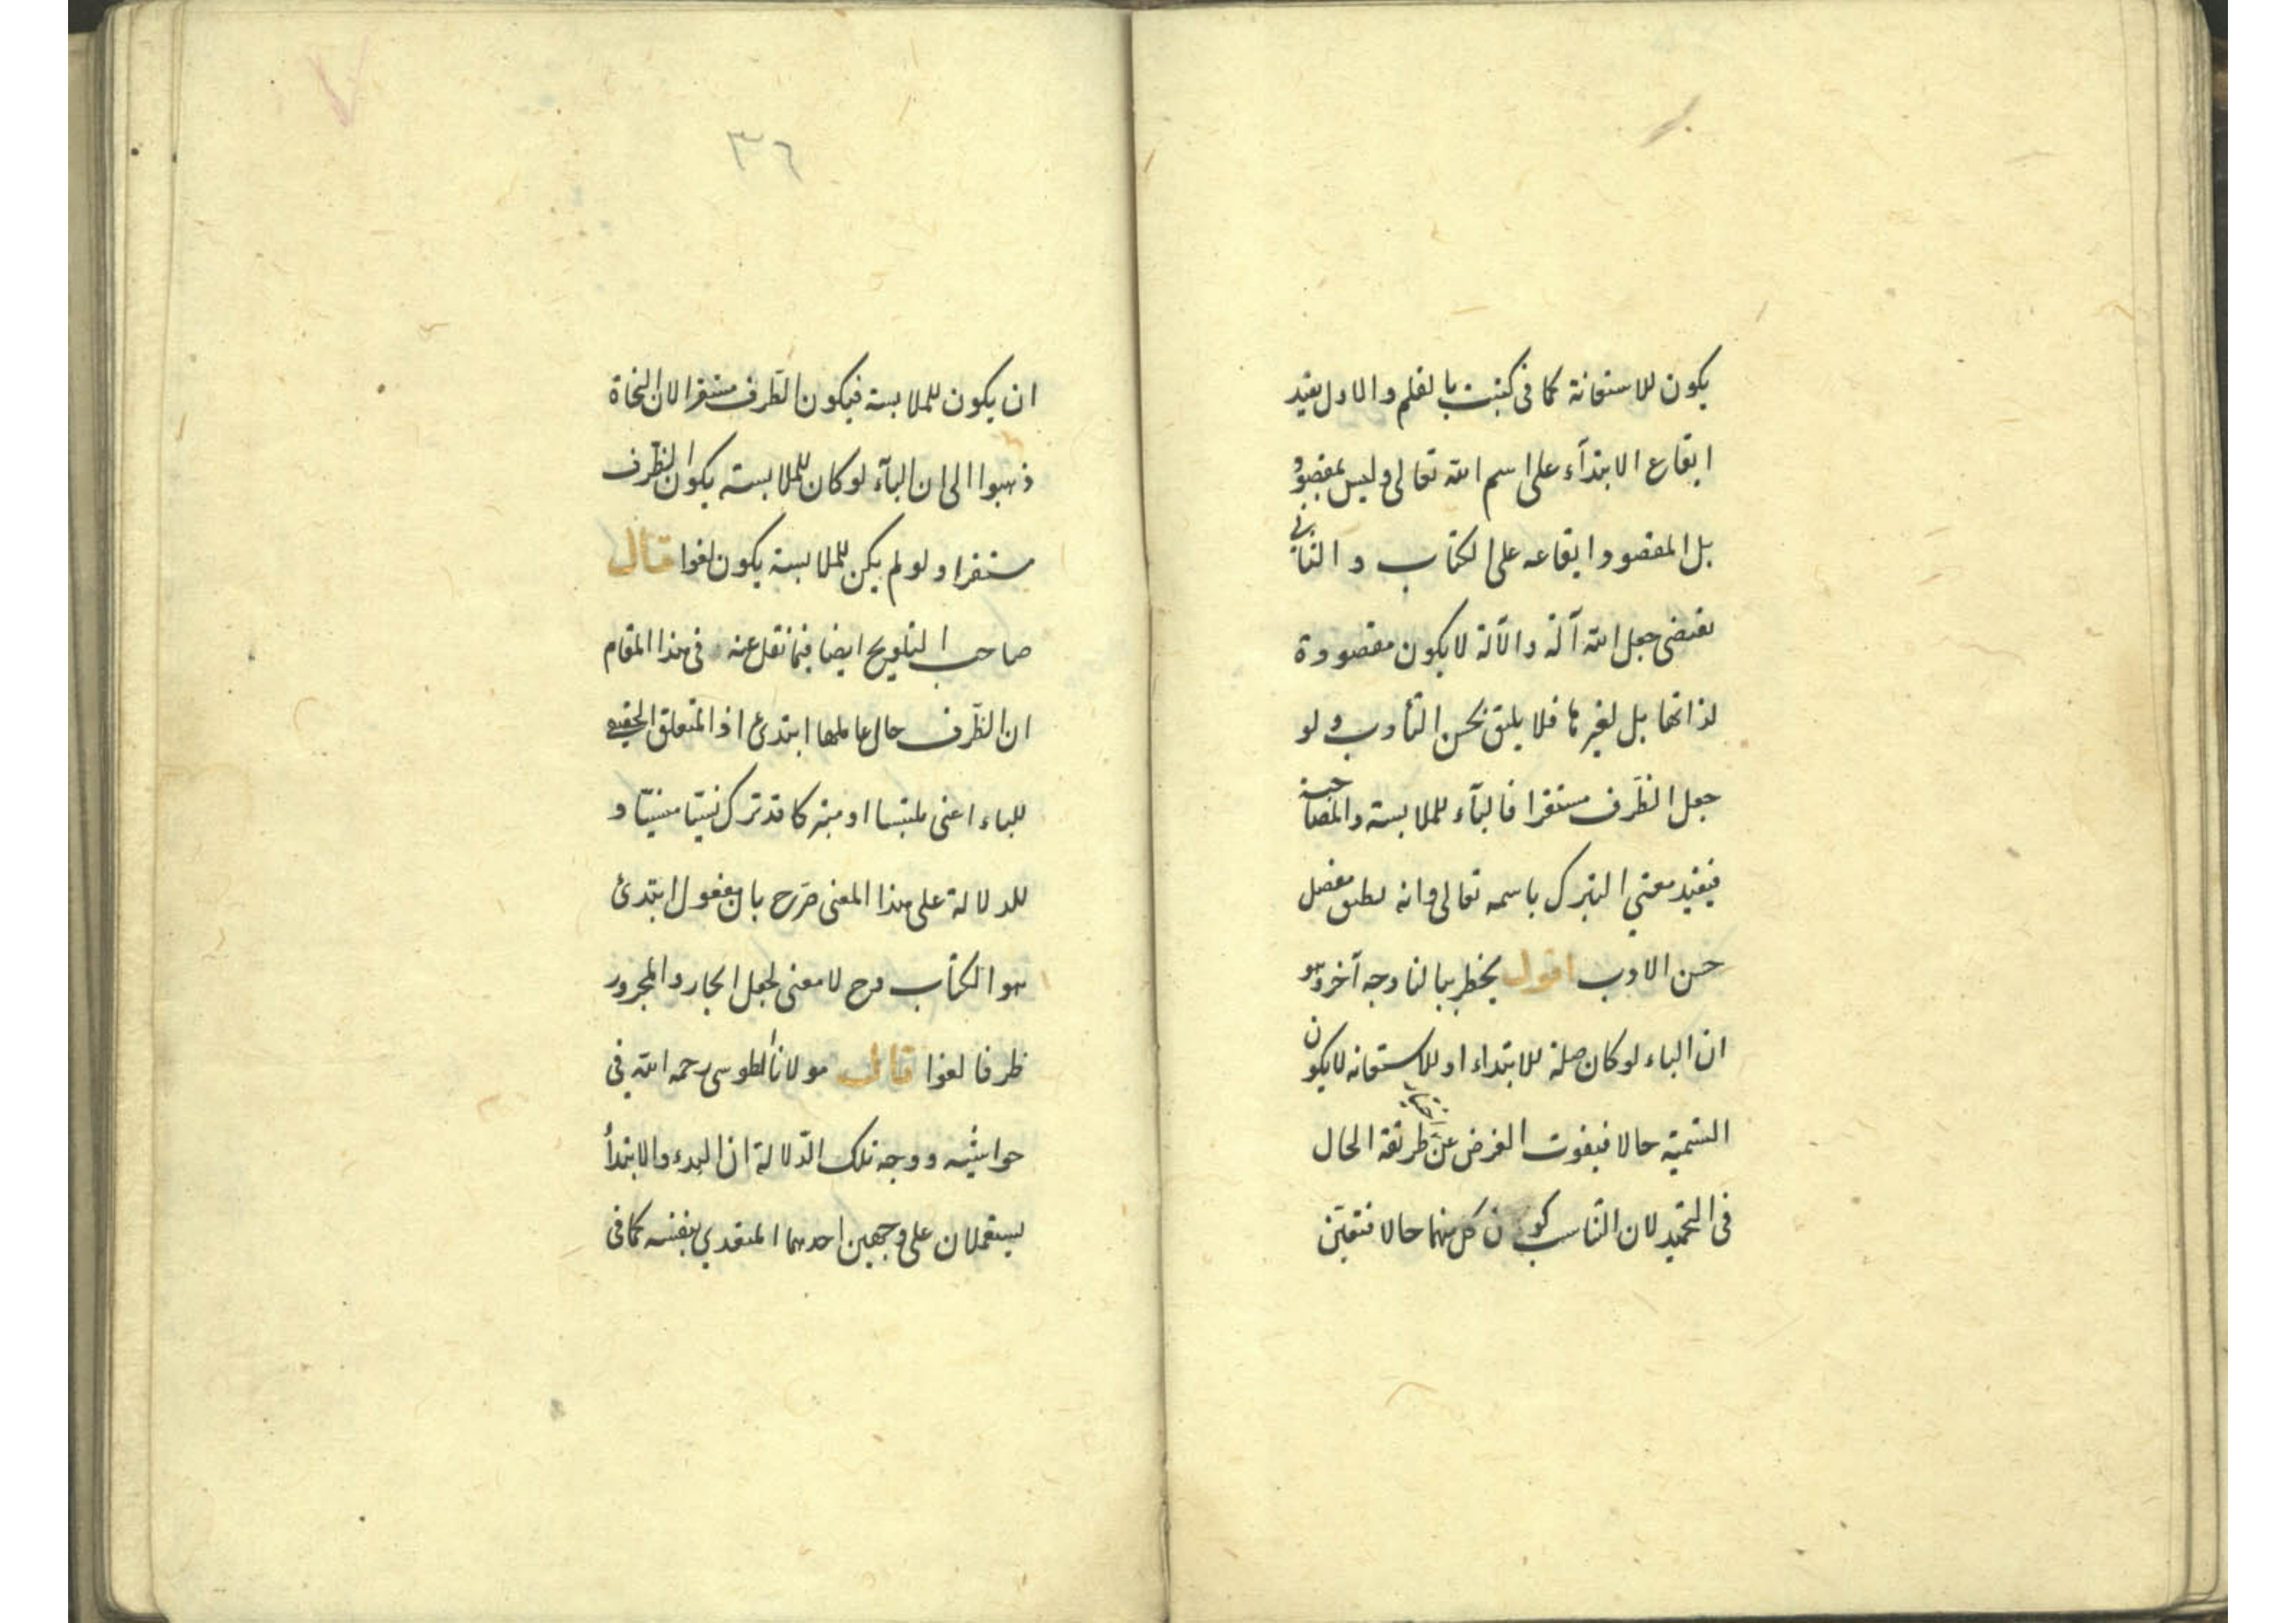 يكون للاستعانة كما فى كتبت بالقلم والاول يفيد
ايقاع الابتدآء على اسم الله تعالى وليس بمقصود
بل المقصود ايقاعه على الكتاب والثانى
يقتضى جعل الله آلة والآلة لا يكون مقصودة
لذاتها بل لغيرها فلا يليق بحسن التأدب ولو
جعل الظرف مستقرا فالبآء للملابسة والمصاحبة
فيفيد معنى التبرك باسمه تعالى وانه
حسن الادب اقول يخطر ببالنا وجه آخر وهو
ان الباء لو كان صلة للابتداء او للاستعانه لا يكون
التسمية حالا فيفوت الغرض عن طريقة الحال
فى التحميد لان التناسب كون كل منهما حالا فتعين
٣٦
ان يكون للملابسة فيكون الظرف مستقرا لان النحاة
ذهبوا الى ان البآء لو كان للملابسة يكون الظرف
مستقرا ولو لم يكن للملابسة يكون لغوا قال
صاحب التلويح ايضا فيما نقل عنه فى هذا المقام
ان الظرف حال عاملها ابتدئ اذ المتعلق الحقيقى
للباء اعنى ملتبسا او متبركا قد ترك نسيا منسيا و
للدلالة على هذا المعنى صرح بان مفعول ابتدئ
هو الكتاب وح لا معنى لجعل الجار والمجرور
ظرفا لغوا قال مولانا الطوسى رحمه الله فى
حواشيه ووجه تلك الدلالة ان البدء والابتدأ
يستعملان على وجهين احدهما المتعدي بنفسه كما فى